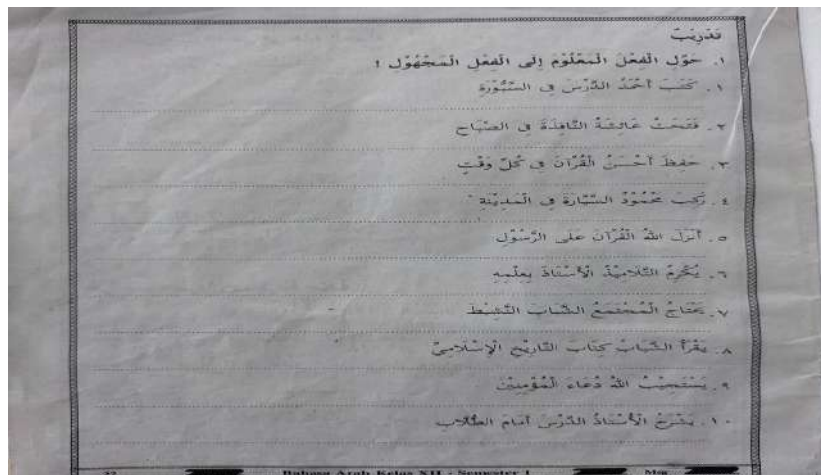 تَدْرِيْبٌ
١. حَوِّلِ الْفِعْلَ الْمَعْلُوْمَ إِلَى الْفِعْلِ الْمَجْهُوْلِ !
١. كَتَبَ أَحْمَدُ الدَّرْسَ فِي السَّبُّوْرَةِ
٢. فَتَحَتْ عَائِشَةُ النَّافِذَةَ فِي الصَّبَاحِ
٣. حَفِظَ أَحْسَنُ الْقُرْآنَ فِي كُلِّ وَقْتٍ
٤. رَكِبَ مَحْمُوْدٌ السَّيَّارَةَ فِي الْمَدِيْنَةِ
٥. أَنْزَلَ اللهُ الْقُرْآنَ عَلَى الرَّسُوْلِ
٦. يُكْرِمُ التَّلَامِيْذُ الْأُسْتَاذَ بِعِلْمِهِ
٧. يَحْتَاجُ الْمُجْتَمَعُ الشَّبَابَ النَّشِيْطَ
٨. يَقْرَأُ الشَّبَابُ كِتَابَ التَّارِيْخِ الْإِسْلَامِيِّ
٩. يَسْتَجِيْبُ اللهُ دُعَاءَ الْمُؤْمِنِيْنَ
١٠. يَشْرَحُ الْأُسْتَاذُ الدَّرْسَ أَمَامَ الطُّلَّابِ
Bahasa Arab Kelas XII - Semester 1